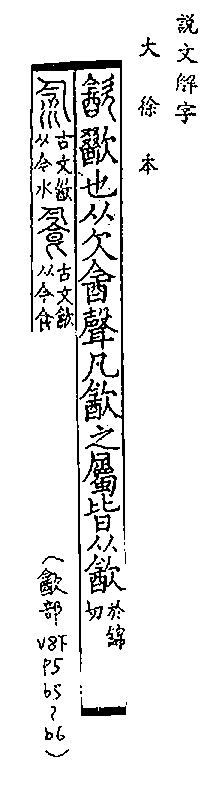 説文解字
大徐本
㱃歠也从欠酓聲凡㱃之屬皆从㱃於錦切
古文㱃从今水
古文㱃从今食
(㱃部 v8下 p5 b5~b6)